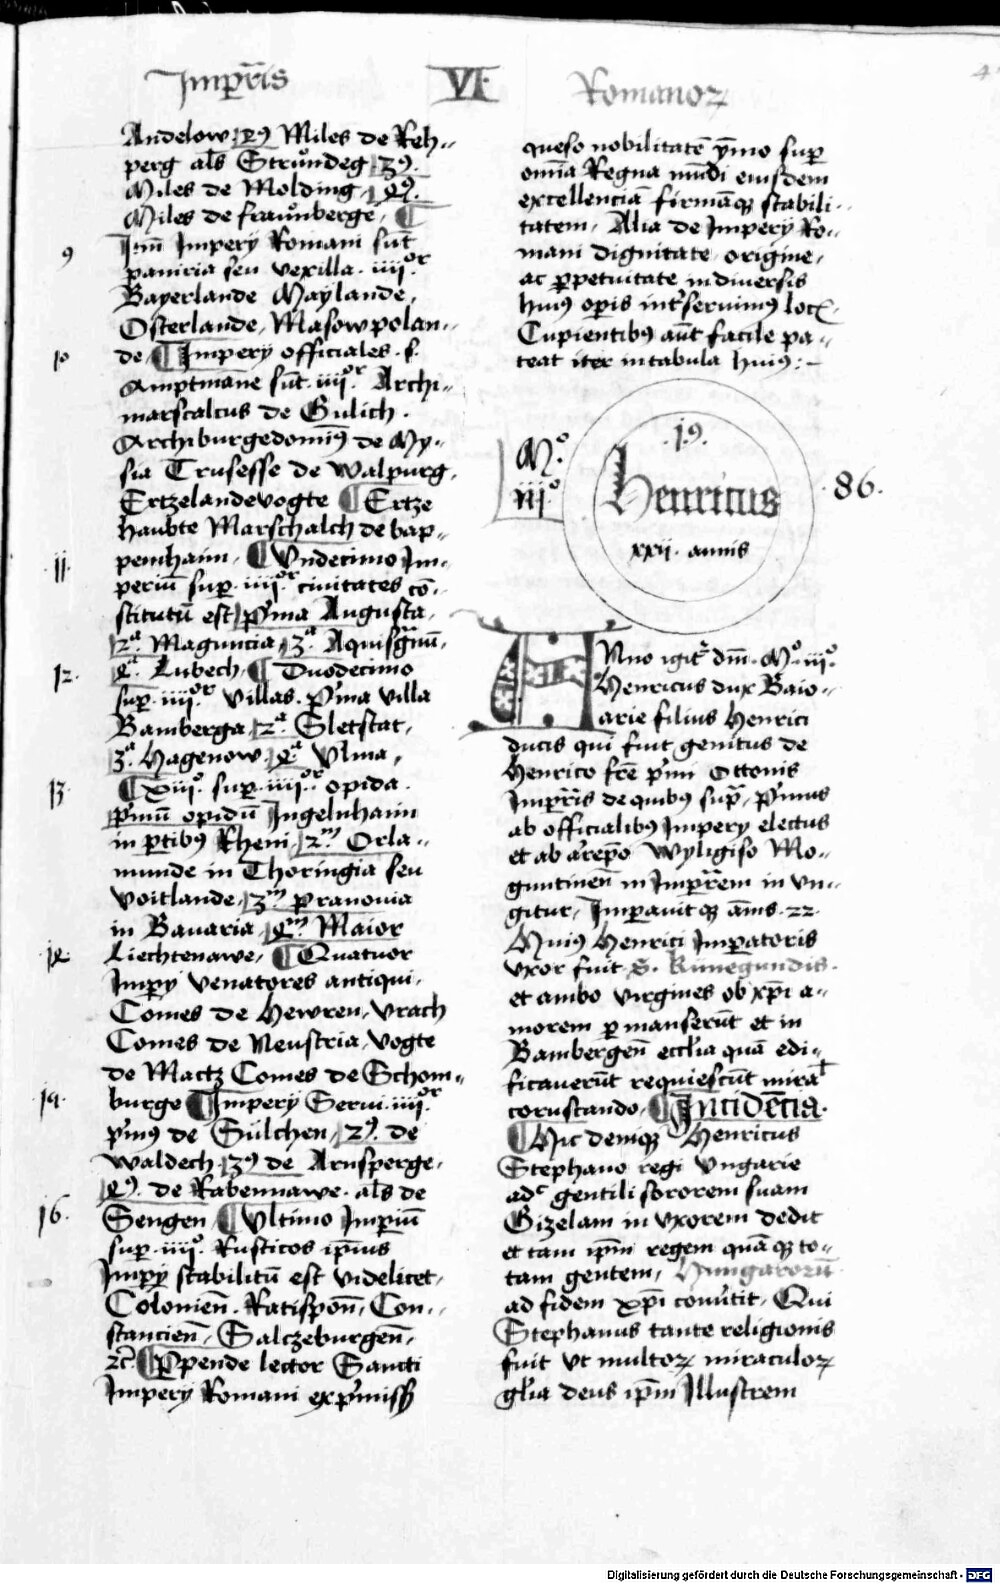 Imp̄r̄is VI Romanoꝝ
Andelow, 2ꝰ Miles de Reh-
perg al̄s Strůndeg, 3ꝰ.
Miles de Molding, 4ꝰ.
Miles de fraůnberge, ¶
9 It̄m Impery Romani su̅t
baniria seu vexilla. iiii.or
Bayerlande Maylande,
Osterlande, Masowpolan-
10 de, ¶ Impery officiales .s.
Amptma̅ne su̅t .iiii.or Archi-
marscalcus de Gulich.
Archiburgedomi̅ꝰ de My-
sia Trusesse de walpurg,
Ertzelandevogte ¶ Ertze
haubte Marschalch de bap-
11 penhaim, ¶ Vndecimo Im-
periu̅ sup. iiii.or ciuitates co̅-
stitutu̅ est, p̕ma Augusta,
2.a Maguncia, 3.a Aquisgra̅nu̅,
12. 4.a Lubech, ¶ Duodecimo
sup. iiii.or villas. p̕ma villa
Bamberga, 2.a Sletstat,
3.a Hagenow, 4.a Vlma,
13 ¶ xiii.o sup. iiii.or opida.
p̕mu̅ opidu̅ Ingelnhaim
in p̄tibꝰ Rheni, 2.m Orla-
munde in Thoringia seu
voitlande, 3.m pranouia
in Bauaria, 4.m Maior
14 Liechtenawe, ¶ Quatuor
Imp̄y venatores antiqui,
Comes de Hewren, vrach
Comes de Neustria, vogte
de Mactz Comes de Schom-
15. burge ¶ Impery Serui .iiii.or
p̕mꝰ de Sülchen, 2ꝰ. de
waldech, 3ꝰ de Arnsperge,
4ꝰ. de Rabennawe. al̄s de
16. Sengen̄, ¶ Vltimo Imp̄iu̅
sup. iiii.o Rusticos ip̄iꝰus
Imp̄y stabilitu̅ est videlicet,
Colonien̄. Ratispon̄, Con-
stancien̄, Salczeburgen̄,
2c̄. ¶ Ppende lector Sancti
Impery Romani exp̕miss
queso nobilitate̅ ym̄o sup
om̄ia Regna mu̅di eiusdem
excellencia̅ firma̅qꝫ stabili-
tatem, Alia de Impery Ro-
mani dignitate, origine,
ac p̱petuitate in diuersis
huiꝰ op̄is int̕seruimꝰ loc̄.
Cupientibꝰ au̅t facile pa-
teat iter in tabula huiꝰ :-
M.o iii.o
.19.
Henricus
xxii. annis
.86.
ANno igit̕ dn̄i. M.o iii.o
Henricus dux Baio-
arie filius Henrici
ducis qui fuit genitus de
Henrico fr̄e p̕mi Ottonis
Imp̄r̄is de quibus sup̄, p̕mus
ab officialibꝰ Impery electus
et ab ar̄ep̄o wyligiso Mo-
guntinen̄ in Imp̄r̄em in vn-
gitur, Imperauitqꝫ an̄is. 22.
Huiꝰ Henrici Imperatoris
vxor fuit S. Künegundis.
et ambo virgines ob xp̄i a-
morem p̱ manseru̅t et in
Bambergen̄ eccl̄ia qua̅ edi-
ficaueru̅t requiescu̅t mira̅l
coruscando, ¶ Incide̅tia.
¶ Hic deniqꝫ Henricus
Stephano regi vngarie
adc̄ gentili sororem suam
Gizelam in vxorem dedit
et tam ip̄m regem qua̅qꝫ to-
tam gentem, Hungaroru̅
ad fidem xp̄i conu̕tit, Qui
Stephanus tante religionis
fuit vt multoꝝ miraculoꝝ
gl̄ia deus ip̄m Illustrem
Digitalisierung gefördert durch die Deutsche Forschungsgemeinschaft - DFG